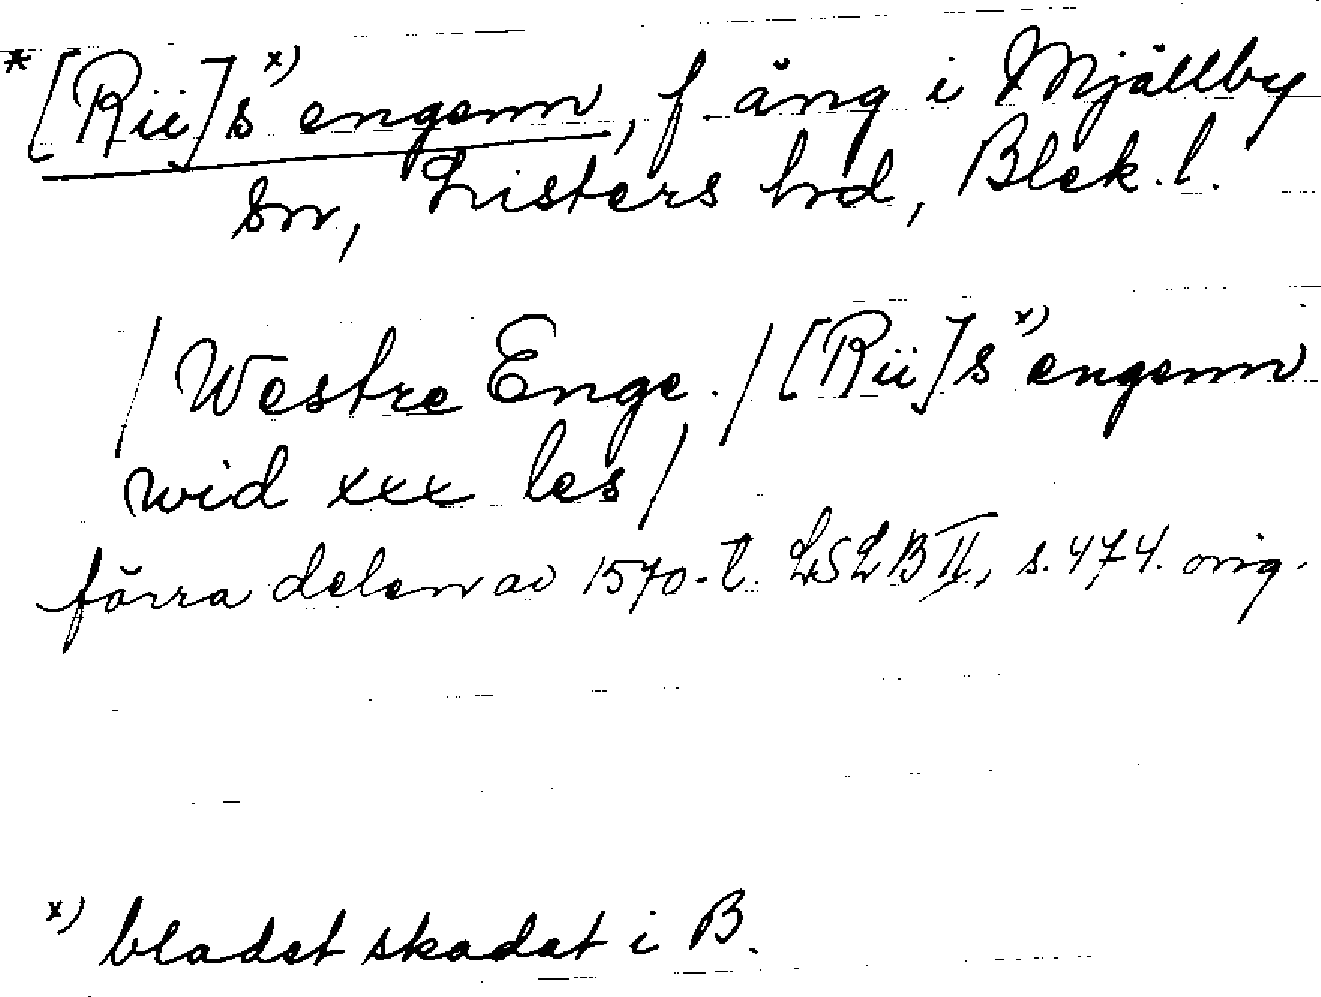 * [Rii]s x) engenn, f. äng i Mjällby
sn, Listers hd, Blek. l.
/ Westre Enge. / [Rii]s x) engenn
wid xxx les /
förra delen av 1570-t. LSLB II, s. 474. orig.
x) bladet skadat i B.